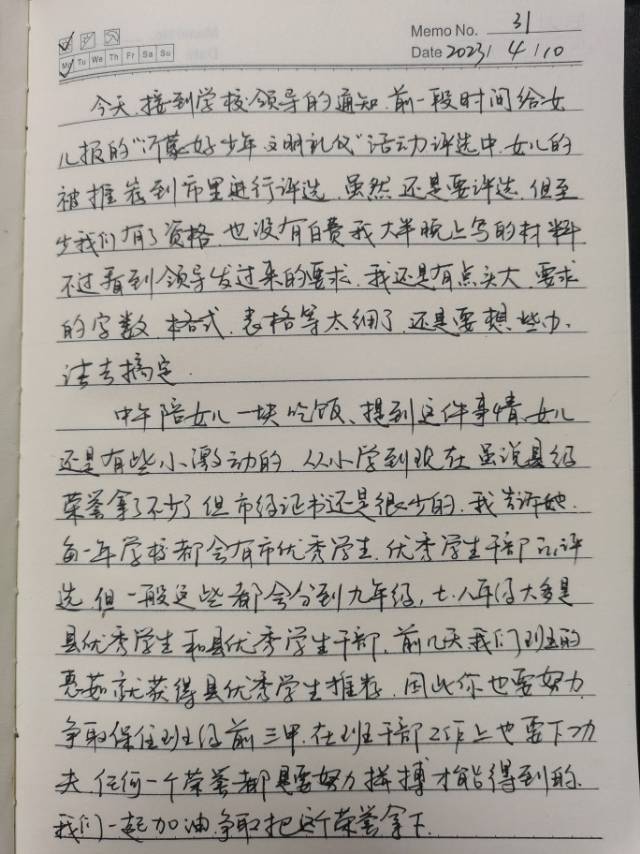 Memo No. 31
Mo Tu We Th Fr Sa Su
Date 2023 / 4 / 10
今天,接到学校领导的通知,前一段时间给女
儿报的“沂蒙好少年 文明礼仪”活动评选中,女儿的
被推荐到市里进行评选,虽然还是要评选,但至
少我们有了资格,也没有白费我大半晚上写的材料
不过看到领导发过来的要求,我还是有点头大,要求
的字数、格式、表格等太细了,还是要想些办
法去搞定.
中午陪女儿一块吃饭、提到这件事情,女儿
还是有些小激动的,从小学到现在虽说县级
荣誉拿了不少但市级证书还是很少的,我告诉她.
每一年学校都会有市优秀学生,优秀学生干部的评
选,但一般这些都会分到九年级,七.八年级大多是
县优秀学生和县优秀学生干部,前几天我们班的
惠茹就获得县优秀学生推荐,因此你也要努力,
争取保住班级前三甲.在班干部工作上也要下功
夫,任何一个荣誉都是要努力拼搏才能得到的.
我们一起加油,争取把这个荣誉拿下.